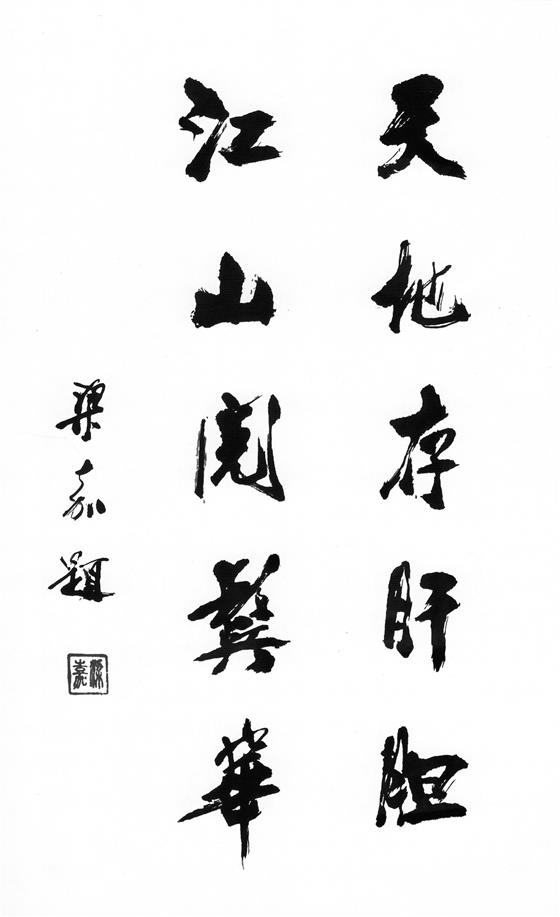 天地存肝胆
江山阅鬓華
梁嘉题
梁嘉